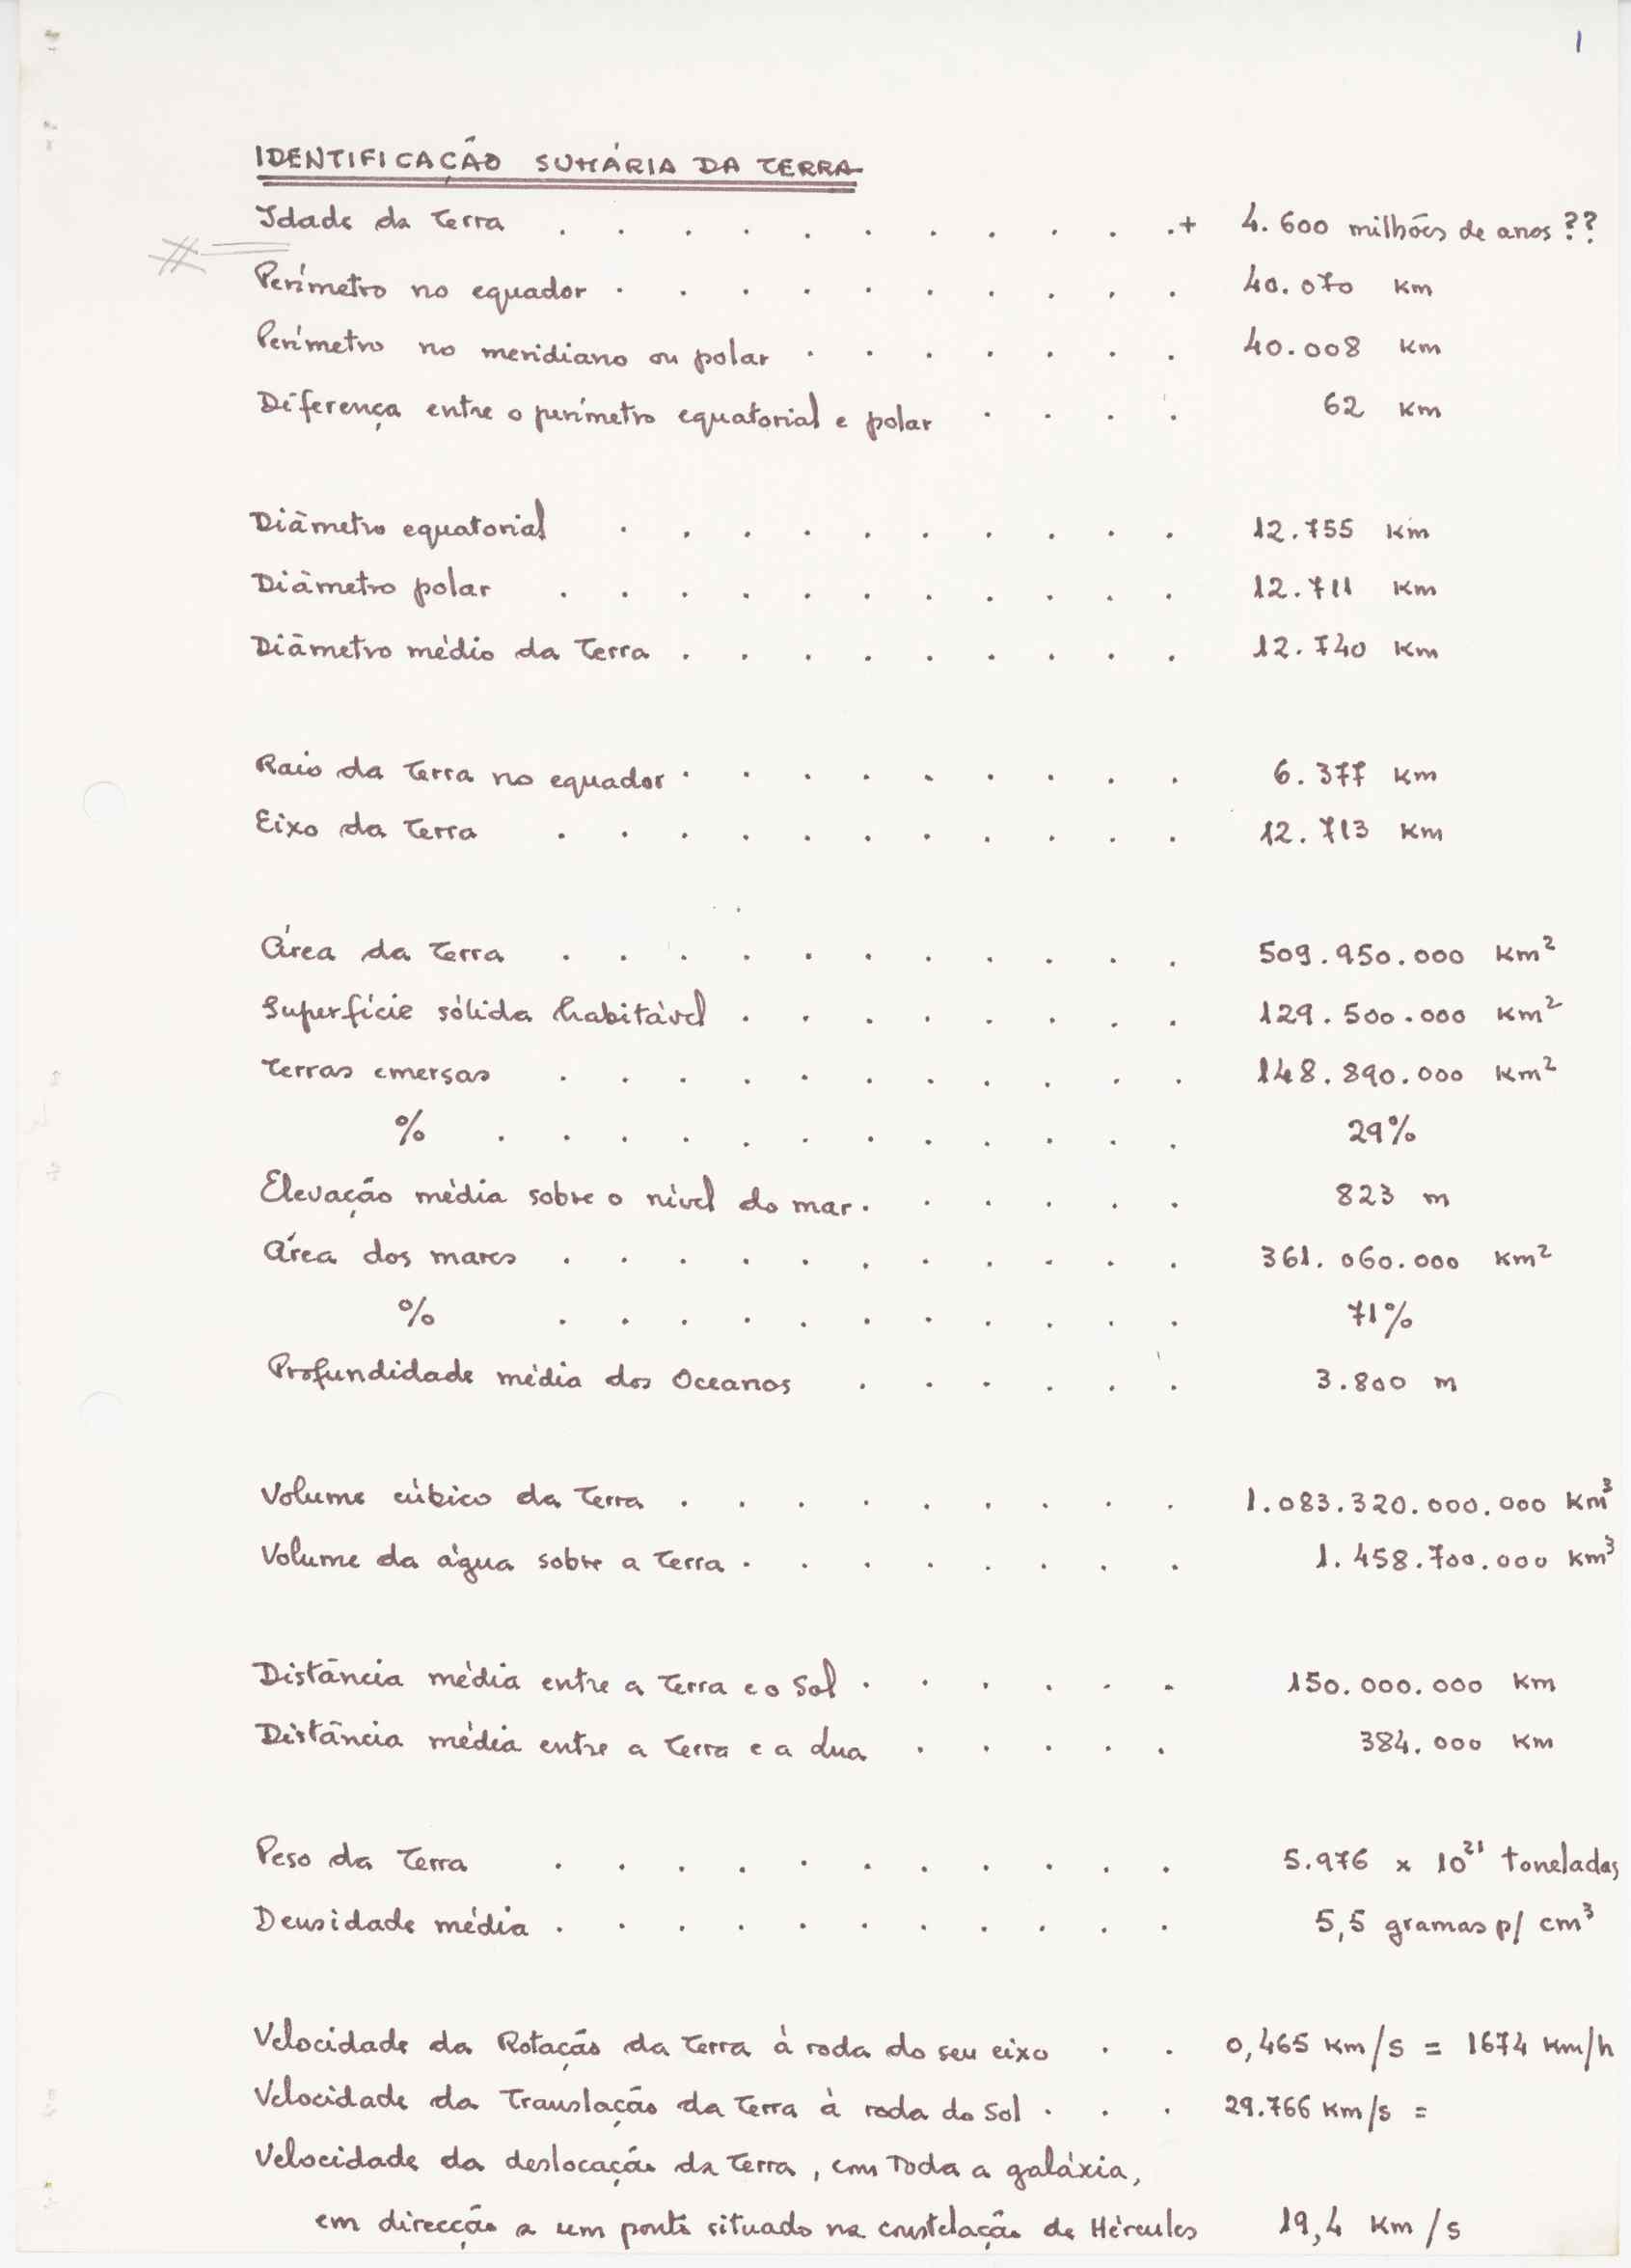 1
IDENTIFICAÇÃO SUMÁRIA DA TERRA
Idade da Terra . . . . . . . . . . . + 4.600 milhões de anos ??
Perímetro no equador . . . . . . . . . . 40.070 Km
Perímetro no meridiano ou polar . . . . . . . 40.008 Km
Diferença entre o perímetro equatorial e polar . . . . 62 Km
Diâmetro equatorial . . . . . . . . . . 12.755 Km
Diâmetro polar . . . . . . . . . . . 12.711 Km
Diâmetro médio da Terra . . . . . . . . . 12.740 Km
Raio da Terra no equador . . . . . . . . . 6.377 Km
Eixo da Terra . . . . . . . . . . . 12.713 Km
Área da Terra . . . . . . . . . . . 509.950.000 Km²
Superfície sólida habitável . . . . . . . . 129.500.000 Km²
Terras emersas . . . . . . . . . . . 148.890.000 Km²
% . . . . . . . . . . . . 29%
Elevação média sobre o nível do mar . . . . . . 823 m
Área dos mares . . . . . . . . . . . 361.060.000 Km²
% . . . . . . . . . . . 71%
Profundidade média dos Oceanos . . . . . . 3.800 m
Volume cúbico da Terra . . . . . . . . . 1.083.320.000.000 Km³
Volume da água sobre a Terra . . . . . . . . 1.458.700.000 Km³
Distância média entre a Terra e o Sol . . . . . . 150.000.000 Km
Distância média entre a Terra e a Lua . . . . . 384.000 Km
Peso da Terra . . . . . . . . . . . 5.976 x 10²¹ toneladas
Densidade média . . . . . . . . . . . 5,5 gramas p/ cm³
Velocidade da Rotação da Terra à roda do seu eixo . . 0,465 Km/s = 1674 Km/h
Velocidade da Translação da Terra à roda do Sol . . . 29.766 Km/s =
Velocidade da deslocação da Terra, com toda a galáxia,
em direcção a um ponto situado na constelação de Hércules 19,4 Km/s